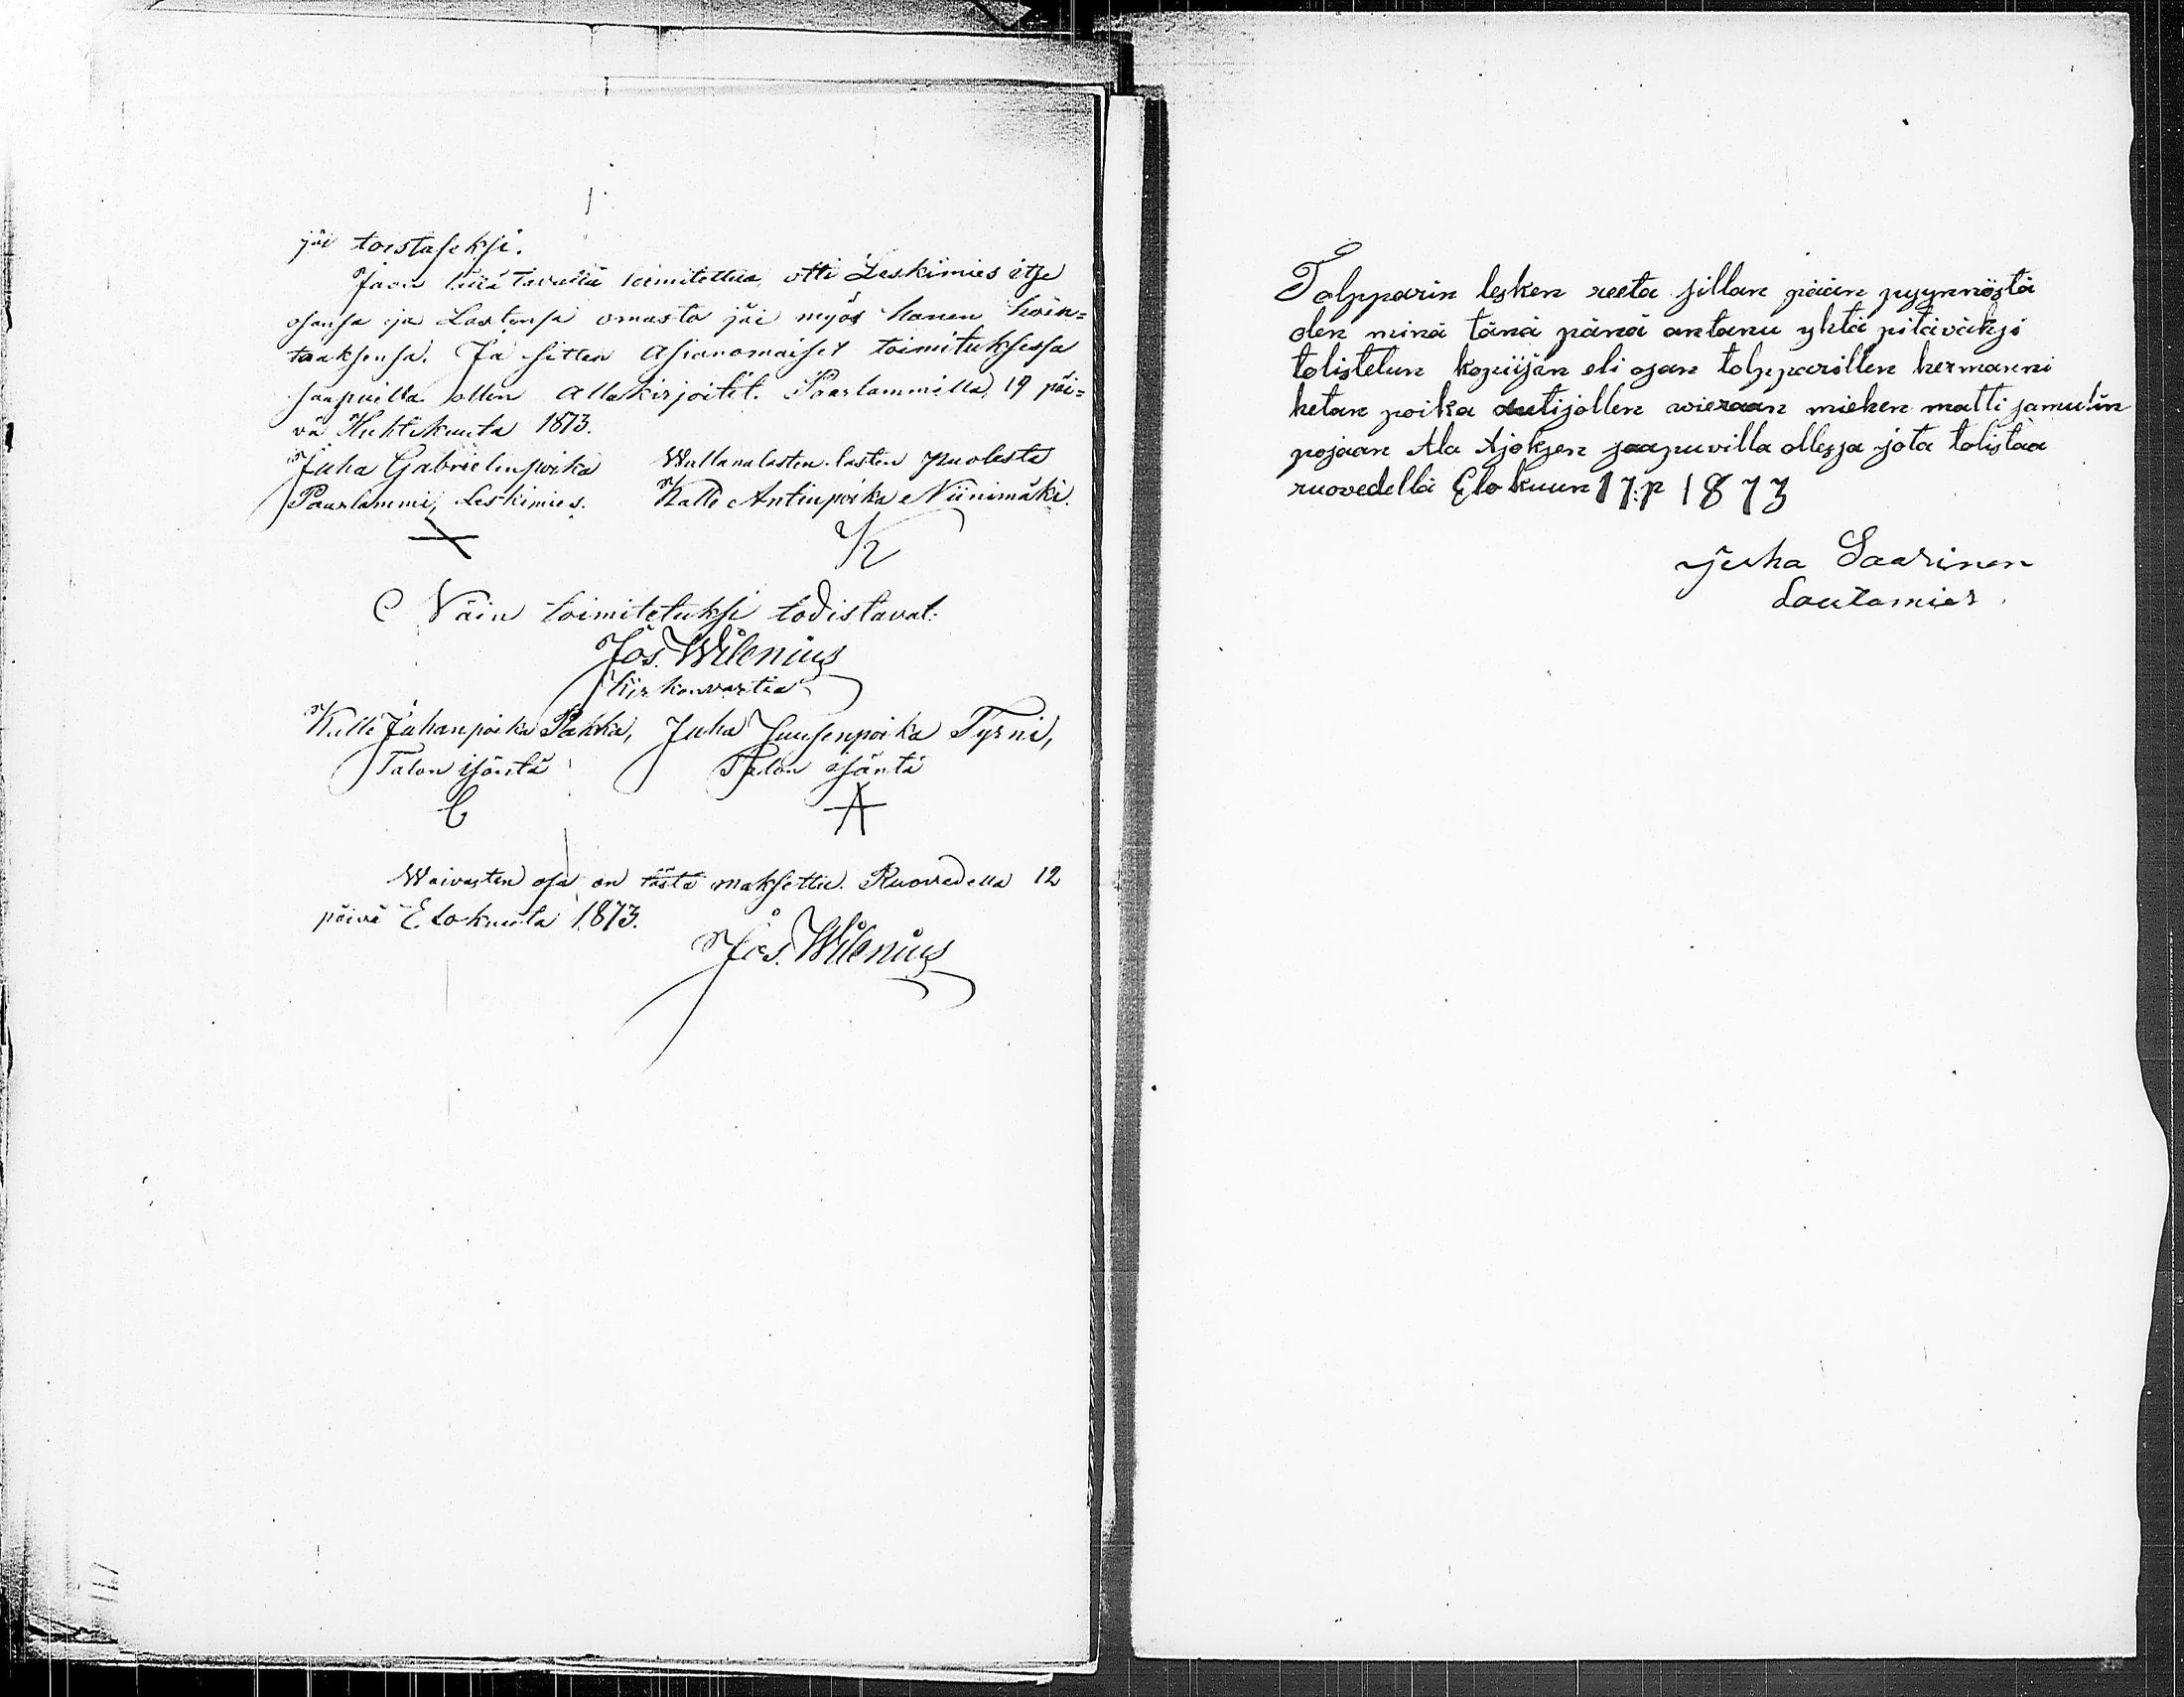 jäi toistaseksi.
Jaon tällä tavalla toimitettua, otti Leskimies itse
osansa ja Lastensa omasto jäi myös hänen hoin=
taaksensa. Ja sitten Asianomaiset toimituksessa
saapuilla ollen allakirjoitit. Paarlammilla, 19 päi=
vä Huhtikuuta 1873.
Juha Gabrielinpoika
Paarlammi, Leskimies.
Wallanalasten lasten puolesta
Kalle Antinpoika Niinimäki.
Näin toimitetuksi todistavat:
Jos. Wilenius
Kirkonvartia
Kalle Juhanpoika Pakka,
Talon isäntä
Juha Juusenpoika Tyrni,
Talon isäntä
Waivasten osa on tästä maksettu. Ruovedellä 12
päivä Elokuuta 1873.
Jos. Wilenius
Tolpparin lesken reeta sillan pään pyynnöstä
olen minä tänä pänä antanu yhtä pitäväksi
tolistelun kopiijan eli osan tolpparillen hermanni
hetan poika antijollen wieraan miehen matti samulin
pojaan Ala Ajoksen saapuvilla ollessa jota tolistaa
ruovedellä Elokuun 17:p 1873
Juha Saarinen
Lautamies.